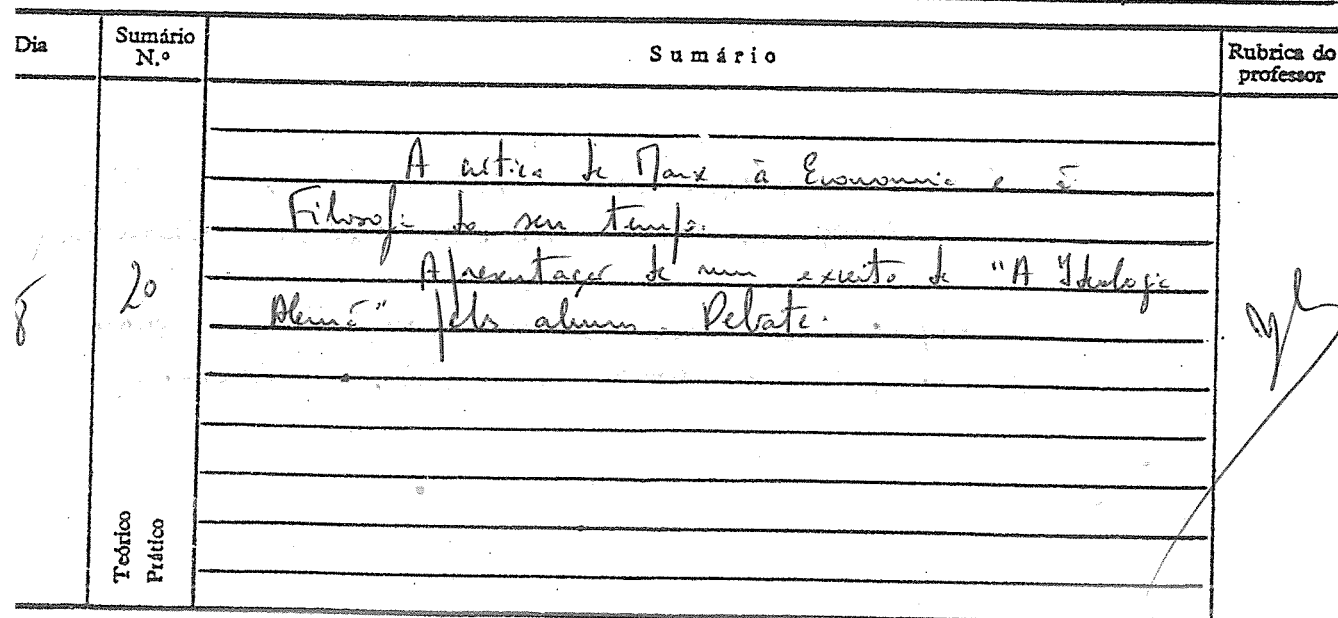 Dia
Sumário N.º
Sumário
Rubrica do professor
8
20
A crítica de Marx à Economia e à
Filosofia do seu tempo.
Apresentação de um excerto de "A Ideologia
Alemã" pelos alunos. Debate.
Teórico
Prático